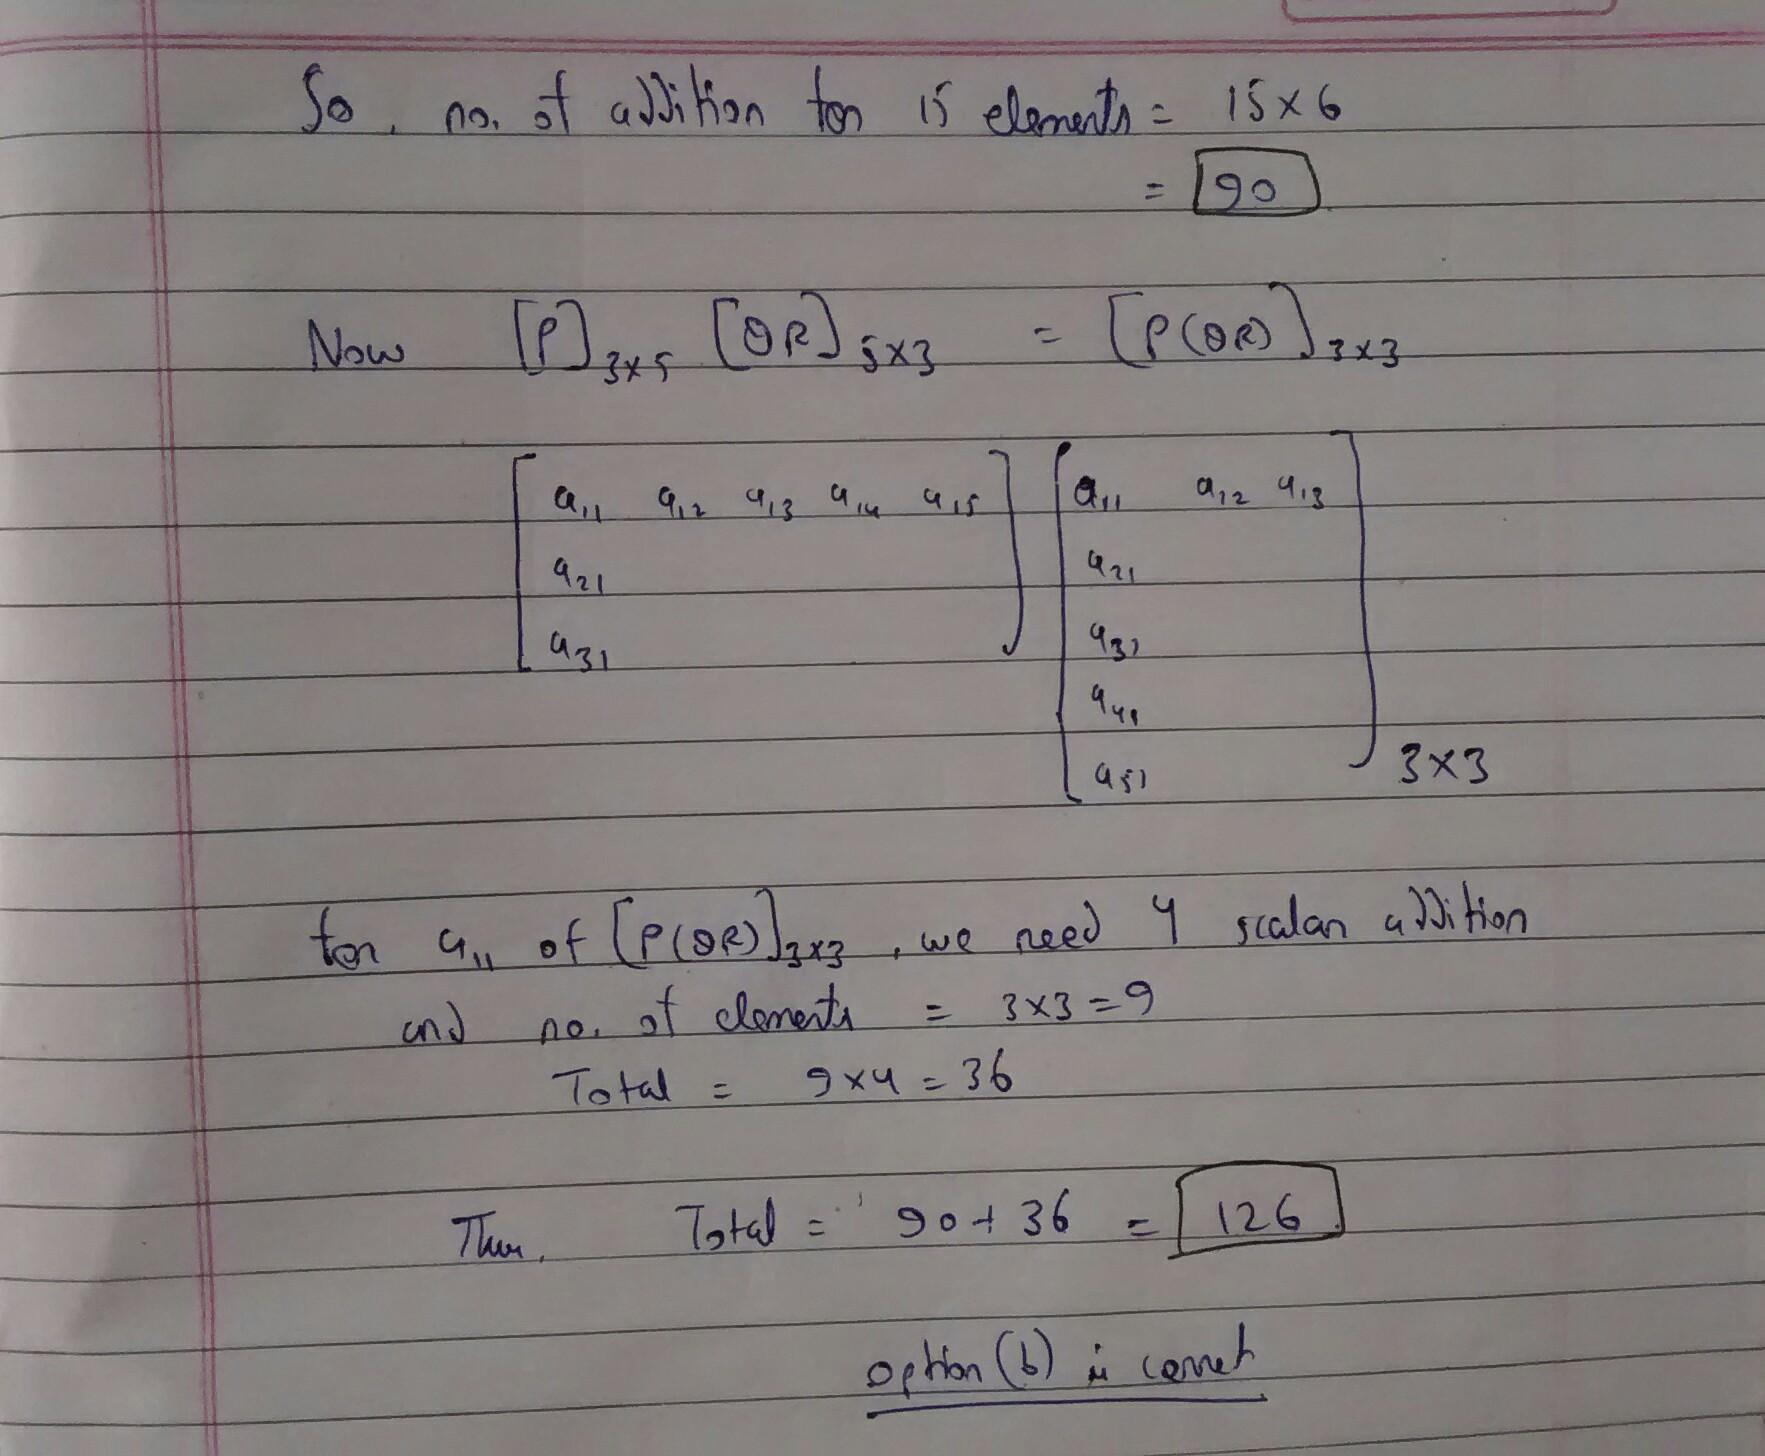 So, no. of addition for 15 elements = 15×6
= 90
Now [P]3×5 [QR]5×3 = [P(QR)]3×3
a11 a12 a13 a14 a15 a11 a12 a13
a21 a21
a31 a31
a41
a51 3×3
for a11 of [P(QR)]3×3, we need 4 scalar addition
and no. of elements = 3×3=9
Total = 9×4=36
Thus, Total = 90+36 = 126
option (b) is correct